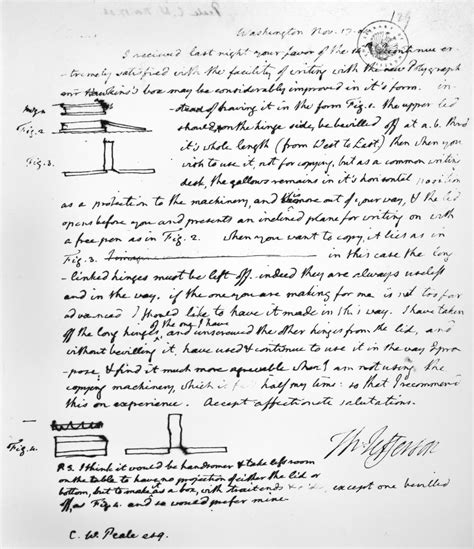 Peale C. W. Nov. 17. 05
129
Washington Nov. 17. 05
I recieved last night your favor of the continue ex
-tremely satisfied with the facility of writing with the new Polygraph
Hawkins's box may be considerably improved in it's form. in-
Fig. 1.
-stead of having it in the form Fig. 1. the upper lid
Fig. 2
should upon the hinge side, be bevilled off at a.b. the
it's whole length (from West to East) then when you
Fig. 3.
wish to use it, not for copying, but as a common writing
desk, the gallows remains in it's horizontal position
as a protection to the machinery, and is more out of your way, & the lid
opens before you and presents an inclined plane for writing on with
a free pen as in Fig. 2. When you want to copy, it lies as in
Fig. 3. in this case the long
-linked hinges must be left off. indeed they are always useless
and in the way. if the one you are making for me is not too far
advanced I should like to have it made in this way. I have taken
of the one I have
off the long hinges, and unscrewed the other hinges from the lid, and
without bevilling it, have used & continue to use it in the way I pro
-pose, & find it much more agreeable when I am not using the
copying machinery, which is full half my time: so that I recommend
this on experience. Accept affectionate salutations.
Th: Jefferson
Fig. 4.
P.S. I think it would be handsomer & take less room
on the table to have no projection of either the lid or
bottom, but to make it as a box, with strait ends & sides, except one bevilled
off, as Fig. 4. and so would prefer mine.
C. W. Peale esq.